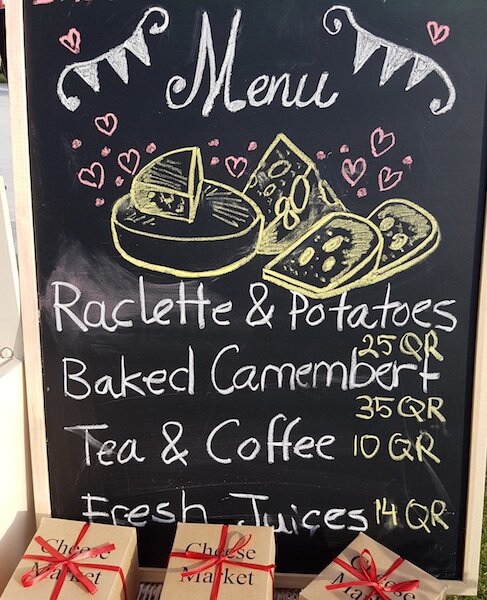 Menu
Raclette & Potatoes
25 QR
Baked Camembert
35 QR
Tea & Coffee 10 QR
Fresh Juices 14 QR
Cheese Market
Cheese Market
Cheese Market